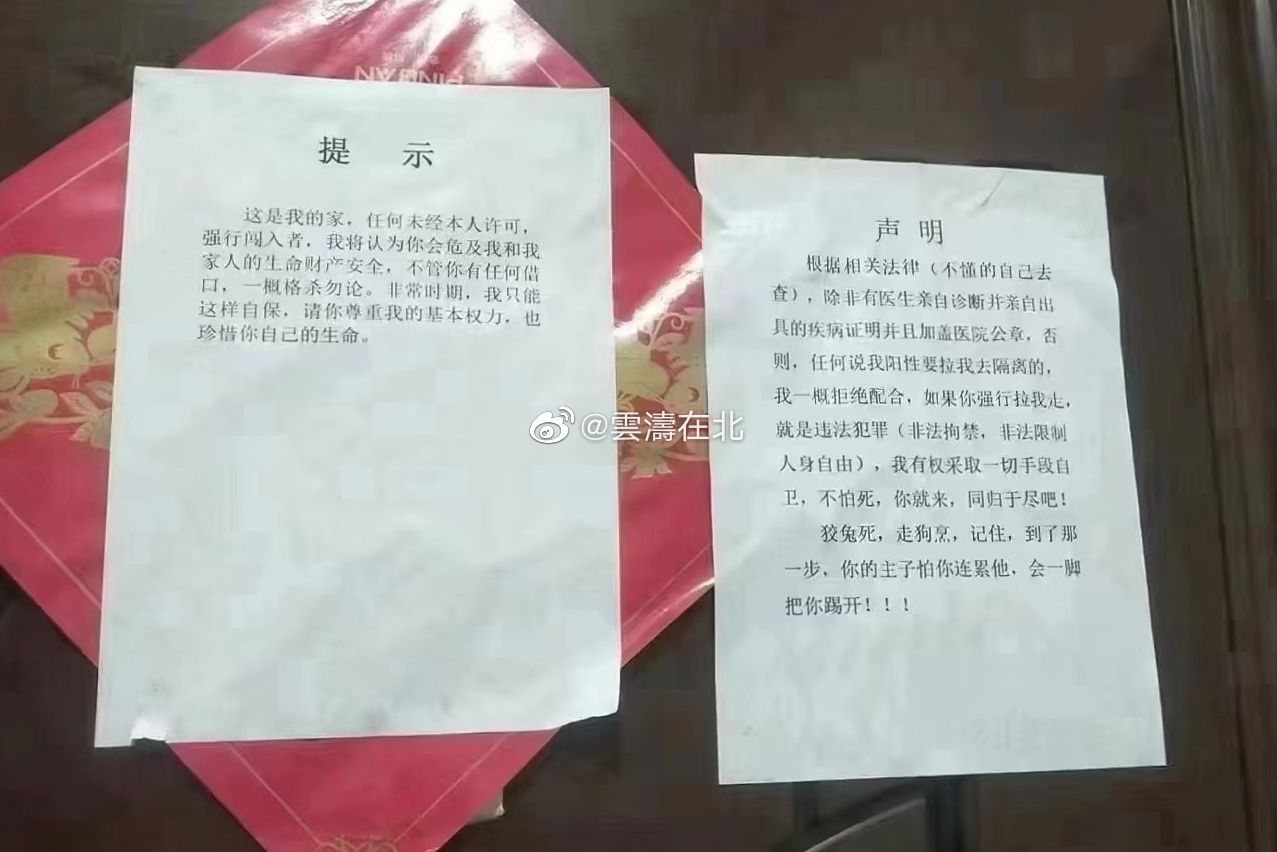 PINGAN
提 示
这是我的家，任何未经本人许可，
强行闯入者，我将认为你会危及我和我
家人的生命财产安全，不管你有任何借
口，一概格杀勿论。非常时期，我只能
这样自保，请你尊重我的基本权力，也
珍惜你自己的生命。
声 明
根据相关法律（不懂的自己去
查），除非有医生亲自诊断并亲自出
具的疾病证明并且加盖医院公章，否
则，任何说我阳性要拉我去隔离的，
我一概拒绝配合，如果你强行拉我走，
就是违法犯罪（非法拘禁，非法限制
人身自由），我有权采取一切手段自
卫，不怕死，你就来，同归于尽吧！
狡兔死，走狗烹，记住，到了那
一步，你的主子怕你连累他，会一脚
把你踢开！！！
@雲濤在北